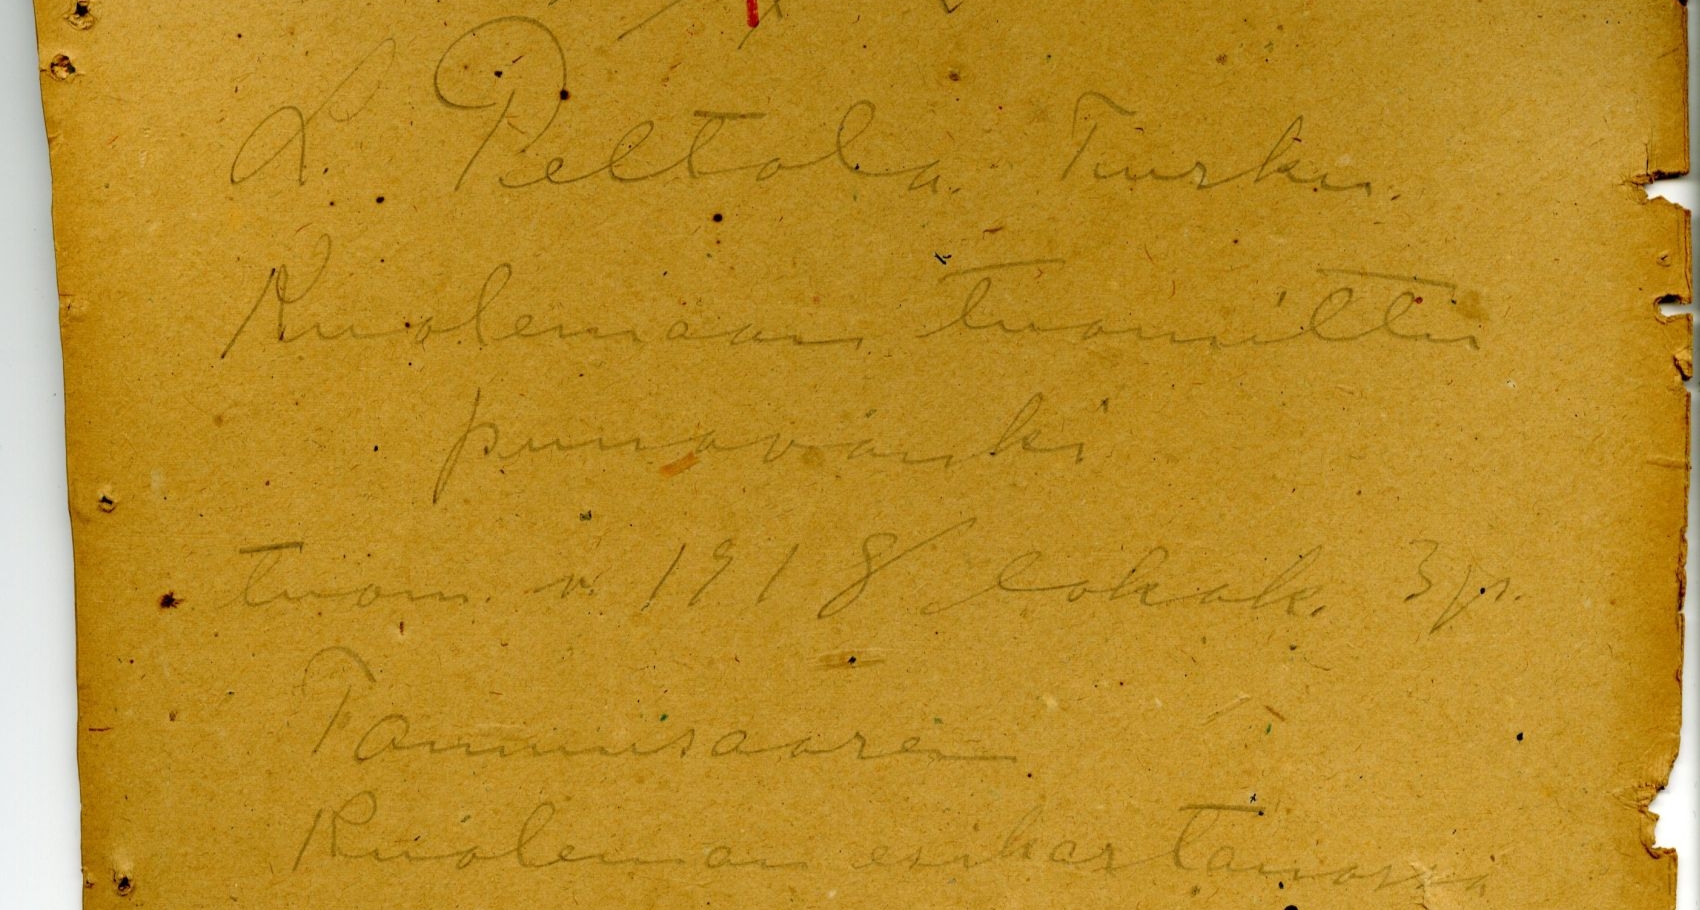 L. Peltola. Turku.
Kuolemaan tuomittu
punavanki
tuom. v. 1918 lokak. 3 p.
Tammisaaren
Kuoleman esikartanossa